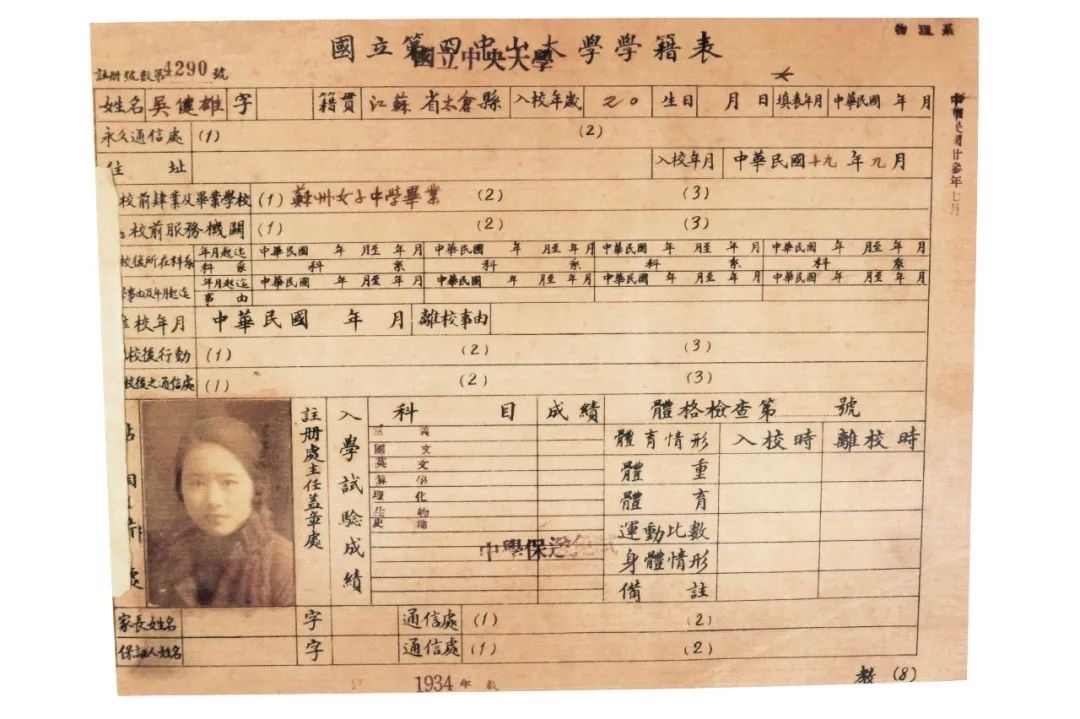 物理系
國立第四中山大學學籍表
國立中央大學
註册號數第4290號
姓名 吳健雄 字 籍貫 江蘇省太倉縣 入校年歲 20 生日 月 日 填表年月 中華民國 年 月
永久通信處 (1) (2)
住址 入校年月 中華民國十九年九月
校前肄業及畢業學校 (1) 蘇州女子中學畢業 (2) (3)
校前服務機關 (1) (2) (3)
校後所在科系 年月起迄 中華民國 年 月至 年 月 中華民國 年 月至 年 月 中華民國 年 月至 年 月 中華民國 年 月至 年 月
科系 科 系 科 系 科 系 科 系
事由及年月起迄 年月起迄 中華民國 年 月至 年 月 中華民國 年 月至 年 月 中華民國 年 月至 年 月 中華民國 年 月至 年 月
事由
校年月 中華民國 年 月 離校事由
校後行動 (1) (2) (3)
校後之通信處 (1) (2) (3)
註册處主任盖章處
入學試驗成績
科目 成績
國文
英文
理化
生物
史地
中學保送免試
體格檢查第 號
體育情形 入校時 離校時
體重
體育
運動比數
身體情形
備註
家長姓名 字 通信處 (1) (2)
保証人姓名 字 通信處 (1) (2)
1934年
教 (8)
中華民國廿參年七月